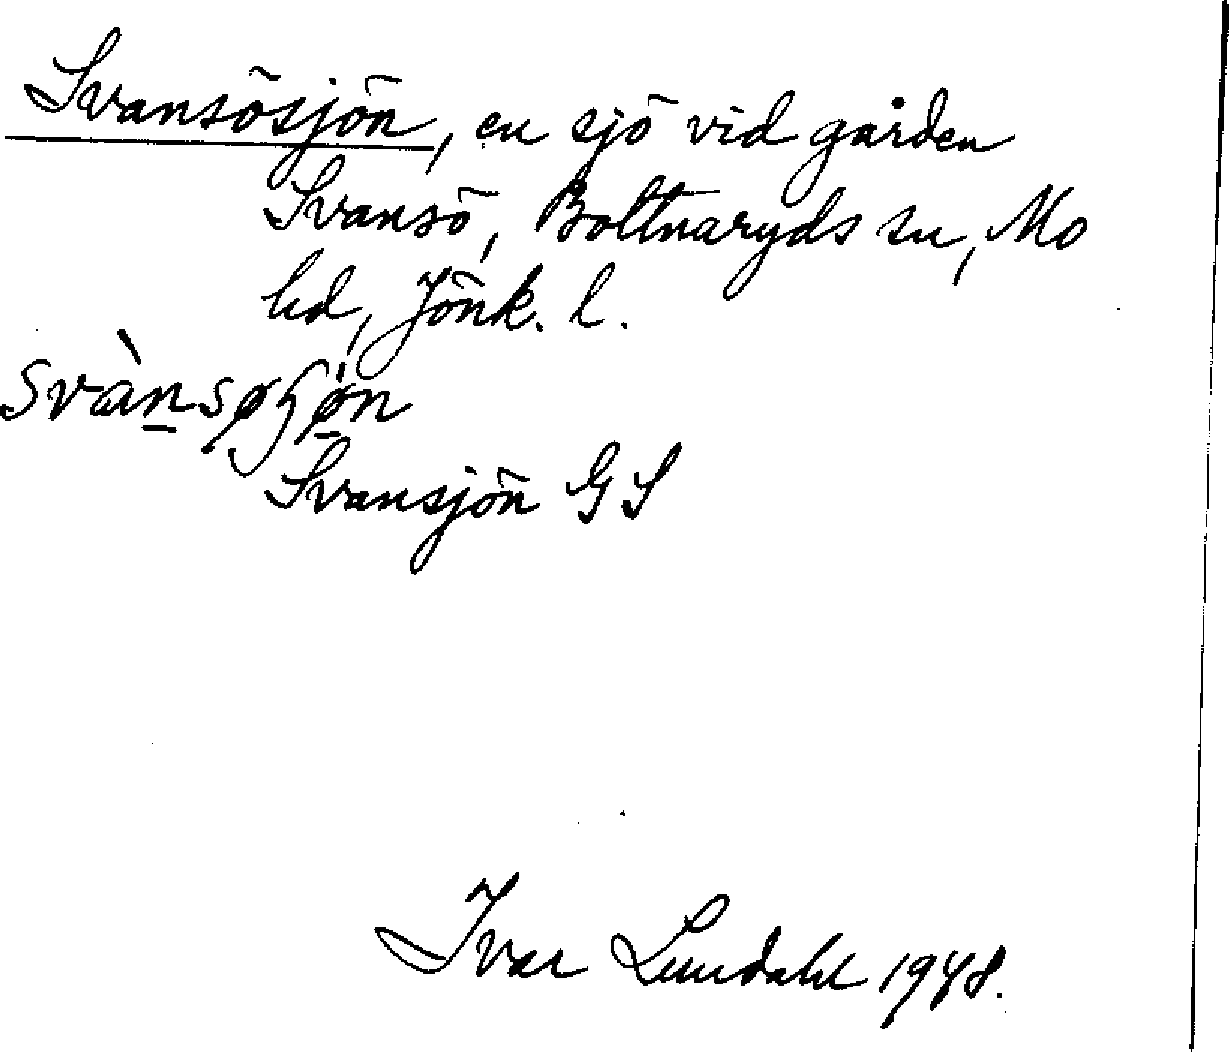 Svansösjön, en sjö vid gården
Svansö, Bottnaryds sn, Mo
hd, Jönk. l.
Svansjön GS
Ivar Lundahl 1948.